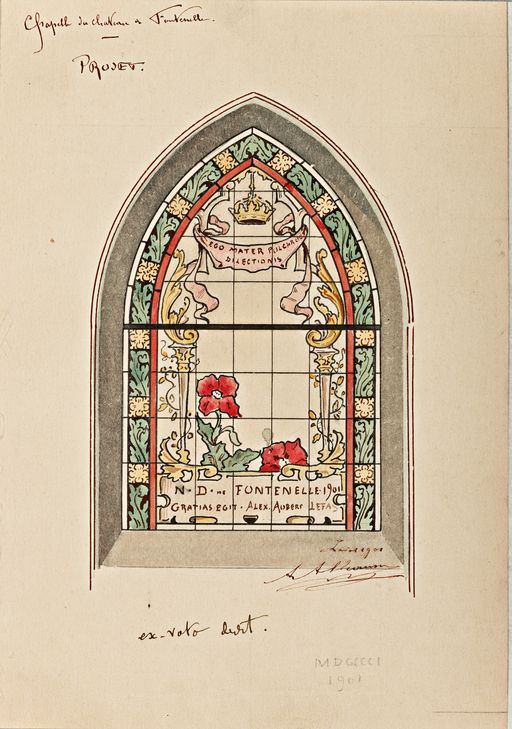 Chapelle du chateau de Fontenelle.
PROJET.
EGO MATER PULCHRÆ
DILECTIONIS
N. D. DE FONTENELLE. 1901
GRATIAS EGIT. ALEX. AUBERT LEFAS
1901
ex-voto
MDCCCCI
1901